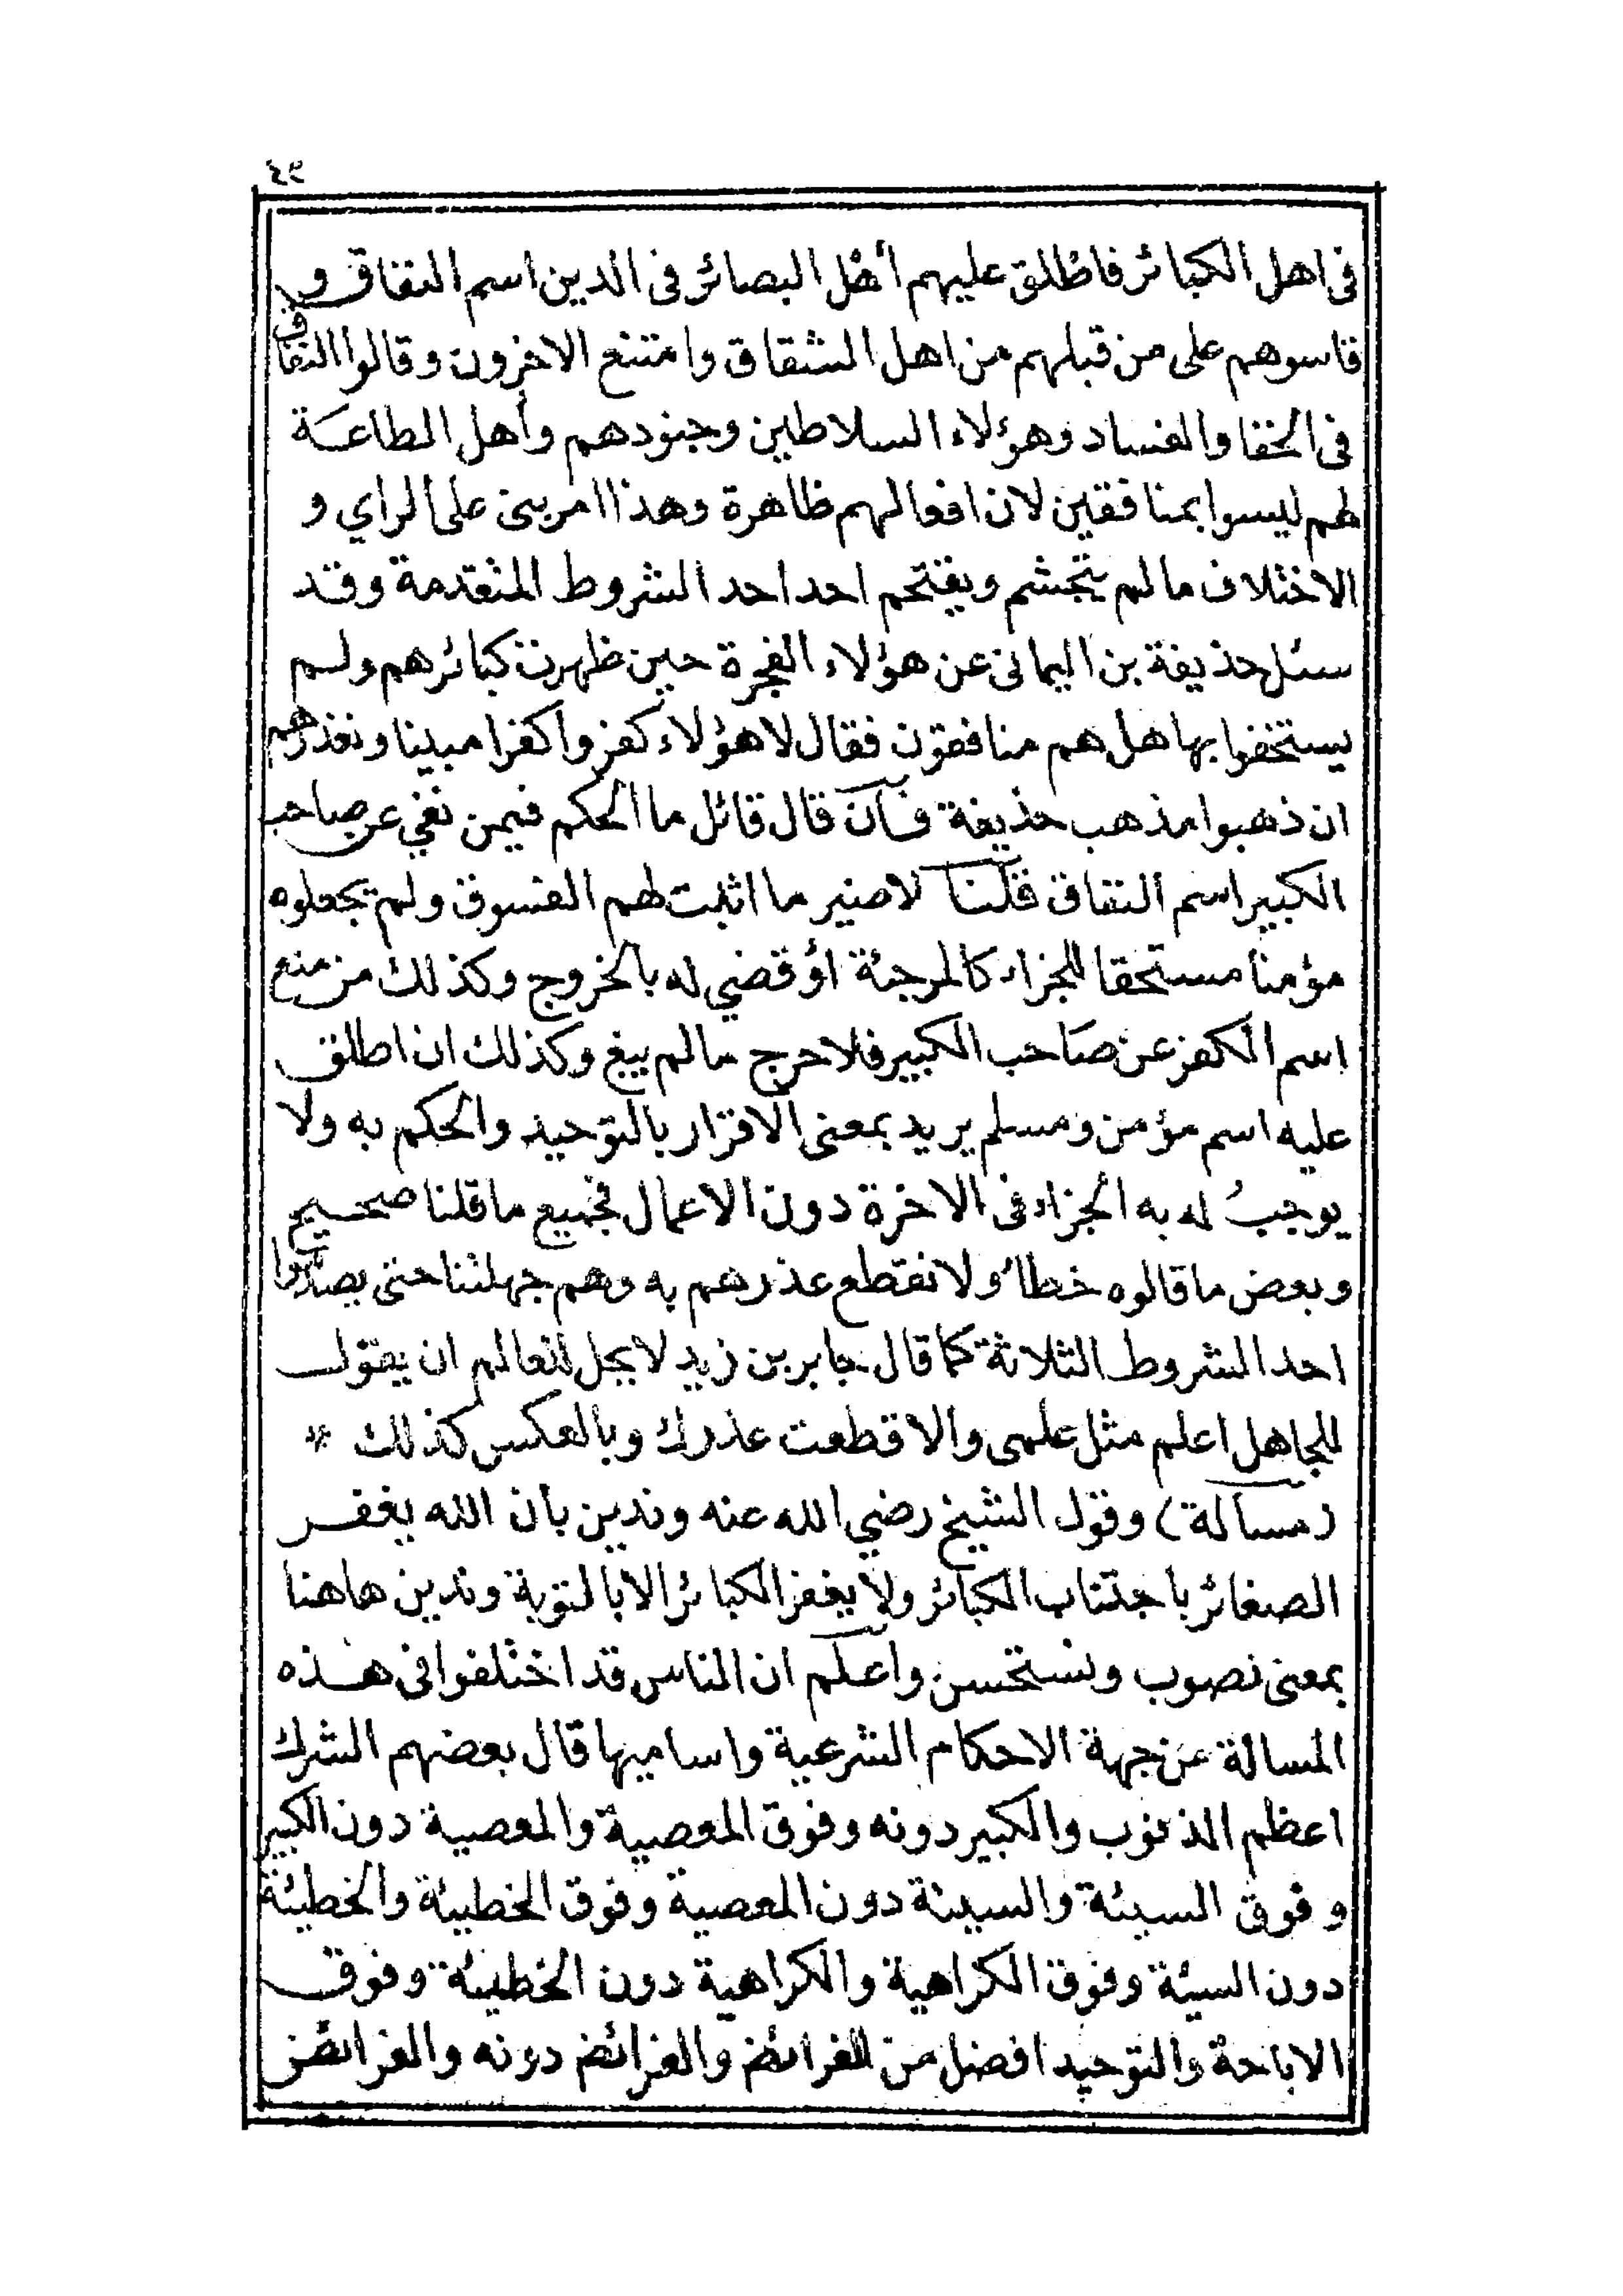 ٩٤
فى اهل الكبائر فاطلق عليهم أهل البصائر فى الدين اسم النفاق و
قاسوهم على من قبلهم من اهل الشقاق وامتنع الاخرون وقالوا النفاق
فى الخفا والفساد وهؤلاء السلاطين وجنودهم وأهل الطاعة
لهم ليسوا بمنافقين لان افعالهم ظاهرة وهذا امر بنى على الراي و
الاختلاف ما لم يتجشم ويقتحم احد احد الشروط المتقدمة وقد
سئل حذيفة بن اليمانى عن هؤلاء الفجرة حين ظهرت كبائرهم ولم
يستخفوا بها هل هم منافقون فقال لا هؤلاء كفروا كفرا مبينا ونعذرهم
ان ذهبوا مذهب حذيفة فان قال قائل ما الحكم فيمن نفي عن صاحب
الكبير اسم النفاق قلنا لا ضير ما اثبت لهم الفسوق ولم يجعلوه
مؤمنا مستحقا للجزاء كالمرجئة اؤ قضي له بالخروج وكذلك من منع
اسم الكفر عن صاحب الكبير فلا حرج ما لم يبغ وكذلك ان اطلق
عليه اسم مؤمن ومسلم يريد بمعنى الاقرار بالتوحيد والحكم به ولا
يوجب له به الجزاء فى الاخرة دون الاعمال فجميع ما قلنا صحيح
وبعض ما قالوه خطأ ولا نقطع عذرهم به وهم جهلتنا حتى
احد الشروط الثلاثة كما قال جابر بن زيد لا يحل للعالم ان يقول
للجاهل اعلم مثل علمى والا قطعت عذرك وبالعكس كذلك *
(مسألة) وقول الشيخ رضي الله عنه وندين بأن الله يغفر
الصغائر باجتناب الكبائر ولا يغفر الكبائر الا بالتوبة وندين هاهنا
بمعنى نصوب ونستحسن واعلم ان الناس قد اختلفوا فى هذه
المسالة عن جهة الاحكام الشرعية واساميها قال بعضهم الشرك
اعظم الذنوب والكبير دونه وفوق المعصية والمعصية دون الكبير
وفوق السيئة والسيئة دون المعصية وفوق الخطيئة والخطيئة
دون السيئة وفوق الكراهية والكراهية دون الخطيئة وفوق
الاباحة والتوحيد افضل من الفرائض والفرائض دونه والفرائض